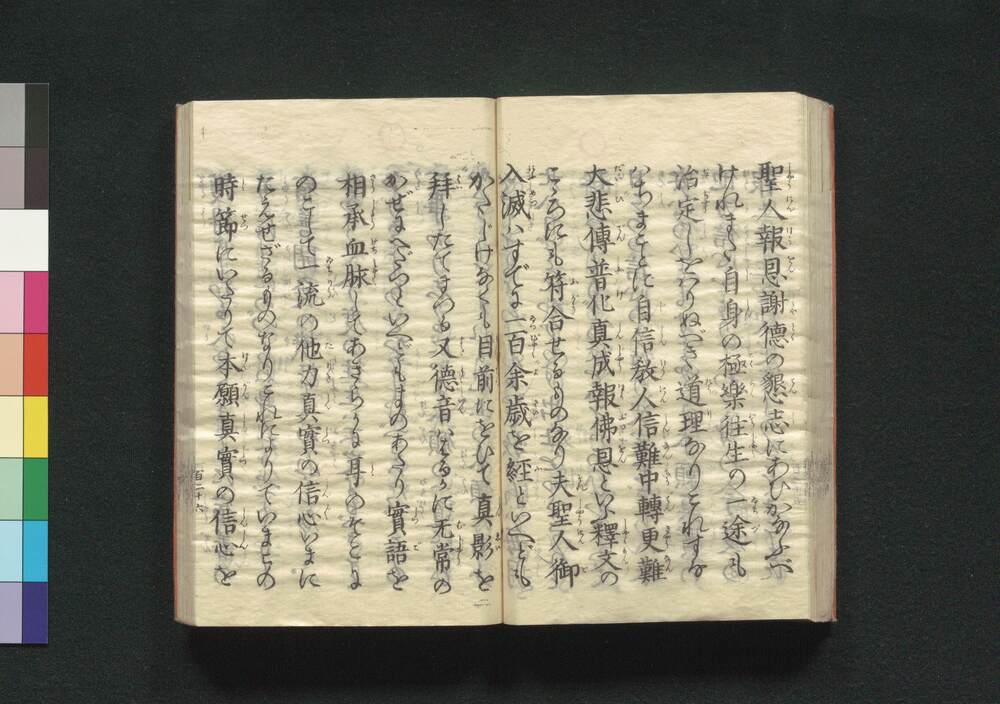 聖人報恩謝德の懇志にあひかなふべ
けれまた自身の極樂往生の一途も
治定しをはりぬべき道理なりこれすな
はちまことに自信教人信難中轉更難
大悲傳普化真成報佛恩といふ釋文の
こゝろにも符合せるものなり夫聖人御
入滅ハすでに一百余歳を經といへども
かたじけなくも目前にをひて真影を
拜したてまつる又德音ハはるかに无常の
かぜにへだつといへどもまのあたり實語を
相承血脉してあきらかに耳のそこに
のこして一流の他力真實の信心いまに
たえせざるものなりこれによりていまこの
時節にいたりて本願真實の信心を
百二十六